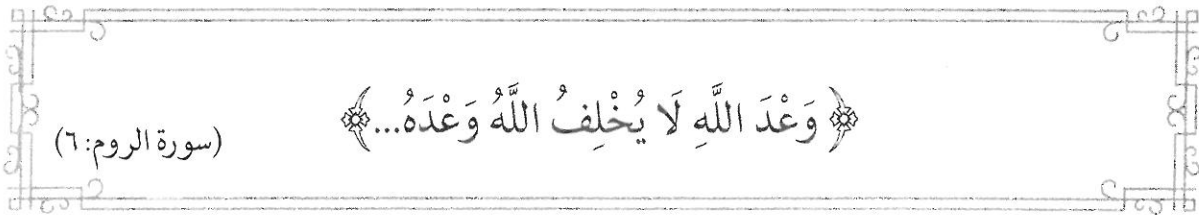 ﴿ وَعْدَ اللَّهِ لَا يُخْلِفُ اللَّهُ وَعْدَهُ...﴾ (سورة الروم: ٦)